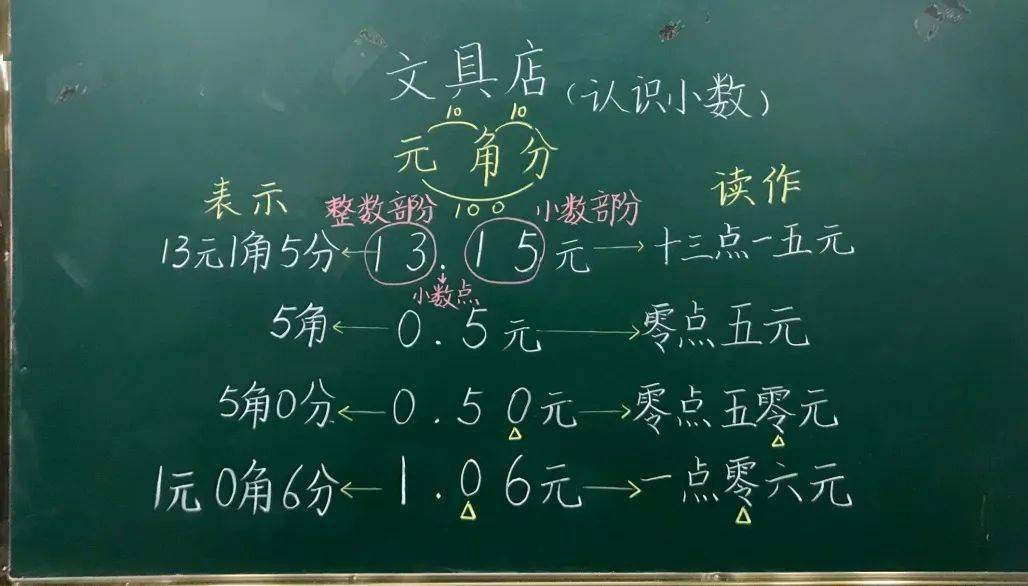 文具店(认识小数)
10 10
元角分
100
表示 整数部分 小数部分 读作
13元1角5分←13.15元→十三点一五元
小数点
5角←0.5元→零点五元
5角0分←0.50元→零点五零元
1元0角6分←1.06元→一点零六元